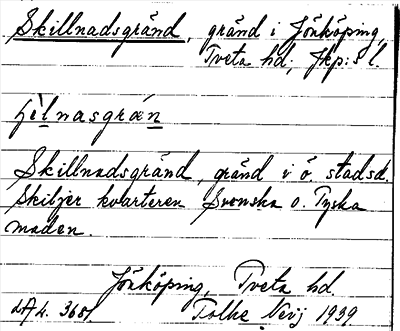 Skillnadsgränd, gränd i Jönköping,
Tveta hd; Jkp:s l.
Skillnadsgränd, gränd i ö. stadsd.
Skiljer kvarteren Svenska o. Tyska
maden.
Jönköping, Tveta hd.
Folke Neij 1939.